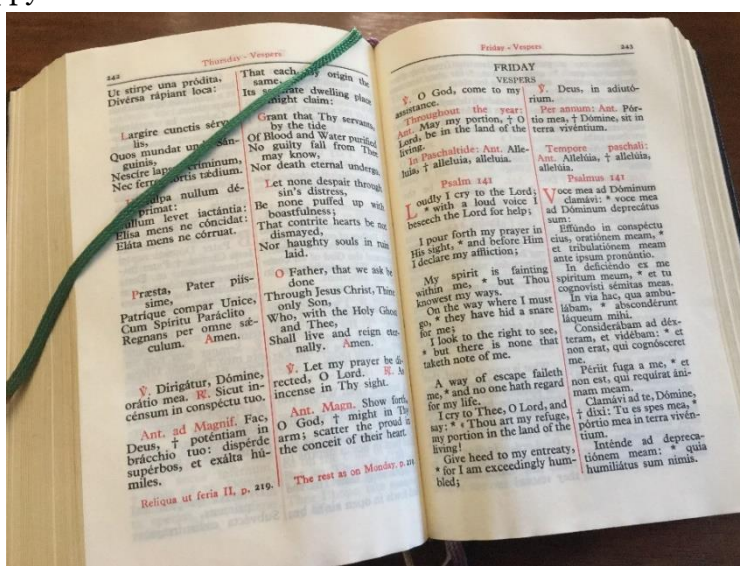 242
Thursday - Vespers
Ut stirpe una pródita,
Divérsa rápiant loca:
Largire cunctis sérvu-
lis,
Quos mundat un sán-
guinis,
Nescíre laps criminum,
Nec ferr ortis tædium.
lpa nullum dé-
primat:
ullum levet iactántia:
Elísa mens ne cóncidat:
Eláta mens ne córruat.
Præsta, Pater piís-
sime,
Patrique compar Unice,
Cum Spíritu Paráclito
Regnans per omne sǽ-
culum. Amen.
℣. Dirigátur, Dómine,
orátio mea. ℟. Sicut in-
cénsum in conspéctu tuo.
Ant. ad Magnif. Fac,
Deus, † poténtiam in
brácchio tuo: dispérde
supérbos, et exálta hú-
miles.
Reliqua ut feria II, p. 219.
That each origin the
same,
Its s rate dwelling place
ight claim:
Grant that Thy servants,
by the tide
Of Blood and Water purified
No guilty fall from Thee
may know,
Nor death eternal undergo.
Let none despair through
sin's distress,
Be none puffed up with
boastfulness;
That contrite hearts be not
dismayed,
Nor haughty souls in ruin
laid.
O Father, that we ask be
done
Through Jesus Christ, Thine
only Son,
Who, with the Holy Ghost
and Thee,
Shall live and reign eter-
nally. Amen.
℣. Let my prayer be di-
rected, O Lord. ℟. As
incense in Thy sight.
Ant. Magn. Show forth,
O God, † might in Thy
arm; scatter the proud in
the conceit of their heart.
The rest as on Monday, p.
Friday - Vespers
243
FRIDAY
VESPERS
℣. O God, come to my
assistance.
Throughout the year:
Ant. May my portion, † O
Lord, be in the land of the
living.
In Paschaltide: Ant. Alle-
luia, † alleluia, alleluia.
Psalm 141
Loudly I cry to the Lord;
* with a loud voice I
beseech the Lord for help;
I pour forth my prayer in
His sight, * and before Him
I declare my affliction;
My spirit is fainting
within me, * but Thou
knowest my ways.
On the way where I must
go, * they have hid a snare
for me;
I look to the right to see,
* but there is none that
taketh note of me.
A way of escape faileth
me, * and no one hath regard
for my life.
I cry to Thee, O Lord, and
say: * « Thou art my refuge,
my portion in the land of the
living!
Give heed to my entreaty,
* for I am exceedingly hum-
bled;
℣. Deus, in adiutó-
rium.
Per annum: Ant. Pór-
tio mea, † Dómine, sit in
terra vivéntium.
Tempore paschali:
Ant. Allelúia, † allelúia,
allelúia.
Psalmus 141
Voce mea ad Dóminum
clamávi: * voce mea
ad Dóminum deprecátus
sum:
Effúndo in conspéctu
eius, oratiónem meam, *
et tribulatiónem meam
ante ipsum pronúntio.
In deficiéndo ex me
spíritum meum, * et tu
cognovísti sémitas meas.
In via hac, qua ambu-
lábam, * abscondérunt
láqueum mihi.
Considerábam ad déx-
teram, et vidébam: * et
non erat, qui cognósceret
me.
Périit fuga a me, * et
non est, qui requírat áni-
mam meam.
Clamávi ad te, Dómine,
† dixi: Tu es spes mea, *
pórtio mea in terra vivén-
tium.
Inténde ad depreca-
tiónem meam: * quia
humiliátus sum nimis.